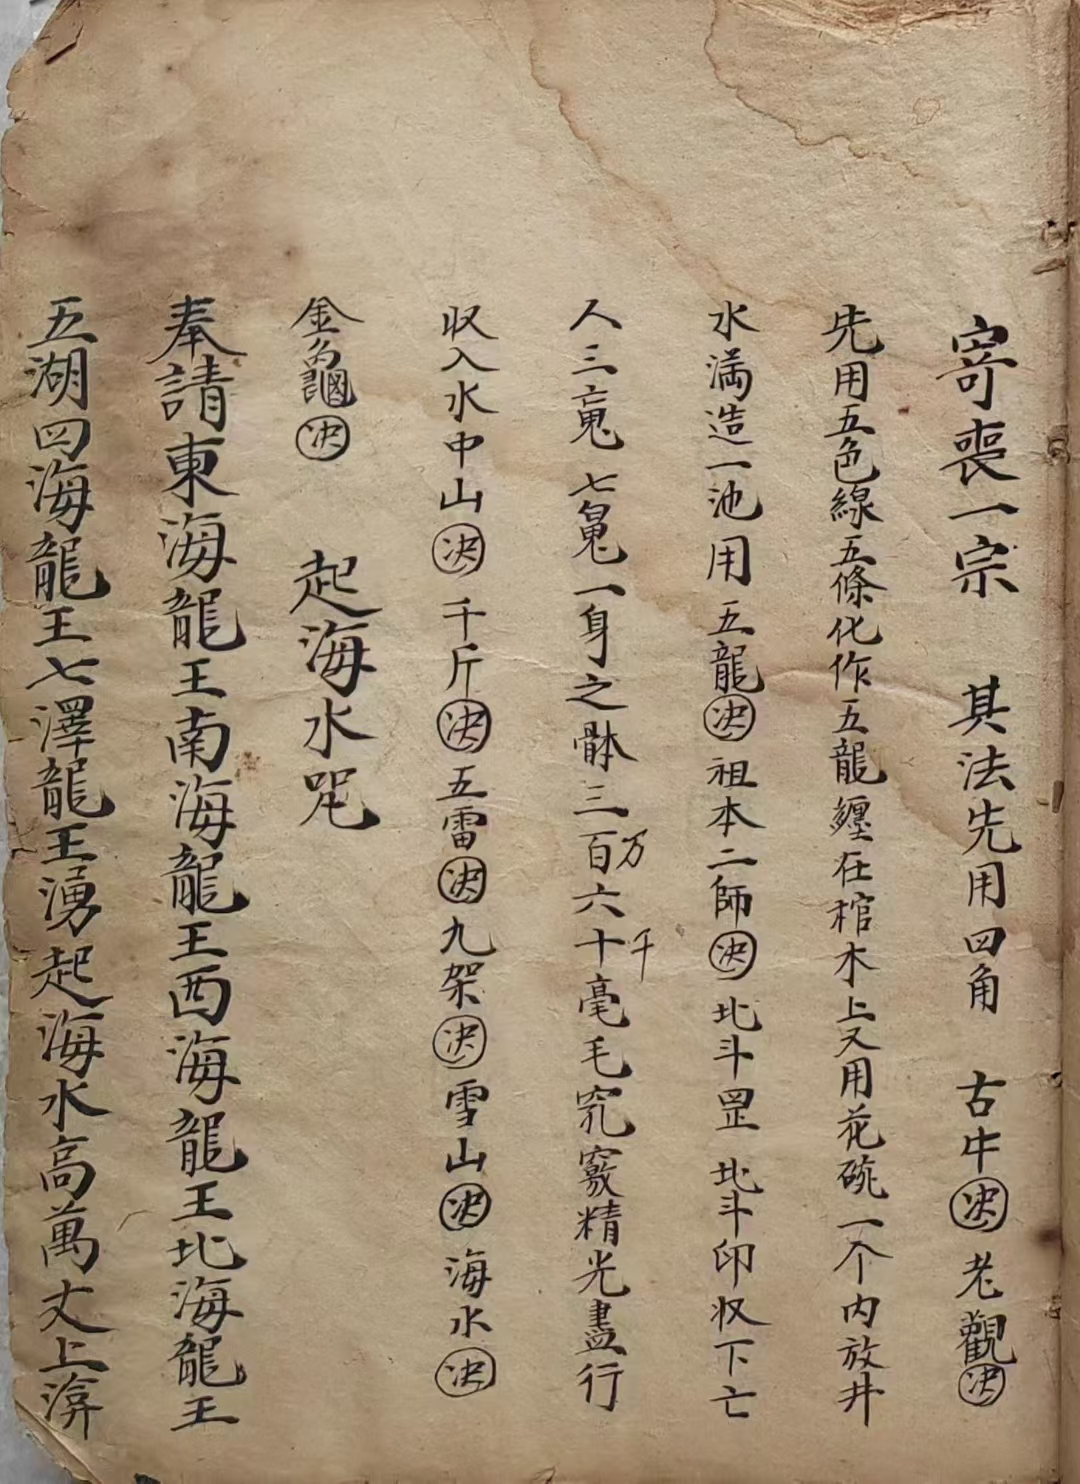 寄喪一宗 其法先用四角 古牛決老觀決
先用五色線五條化作五龍纏在棺木上又用花碗一个内放井
水滿造一池用五龍決祖本二師決北斗罡北斗印収下亡
人三魂七魄一身之体三百万六十千毫毛究竅精光盡行
収入水中山決千斤決五雷決九架決雪山決海水決
金龜決 起海水咒
奉請東海龍王南海龍王西海龍王北海龍王
五湖四海龍王七澤龍王湧起海水高萬丈上